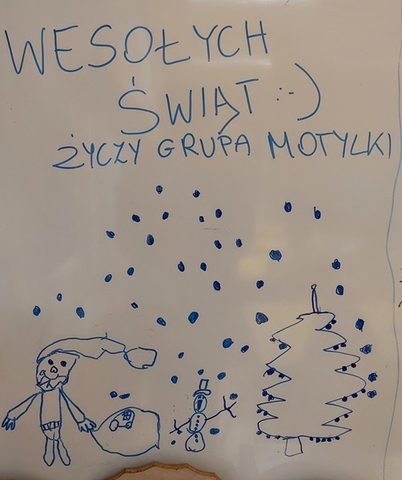 WESOŁYCH
ŚWIĄT :-)
ŻYCZY GRUPA MOTYLKI